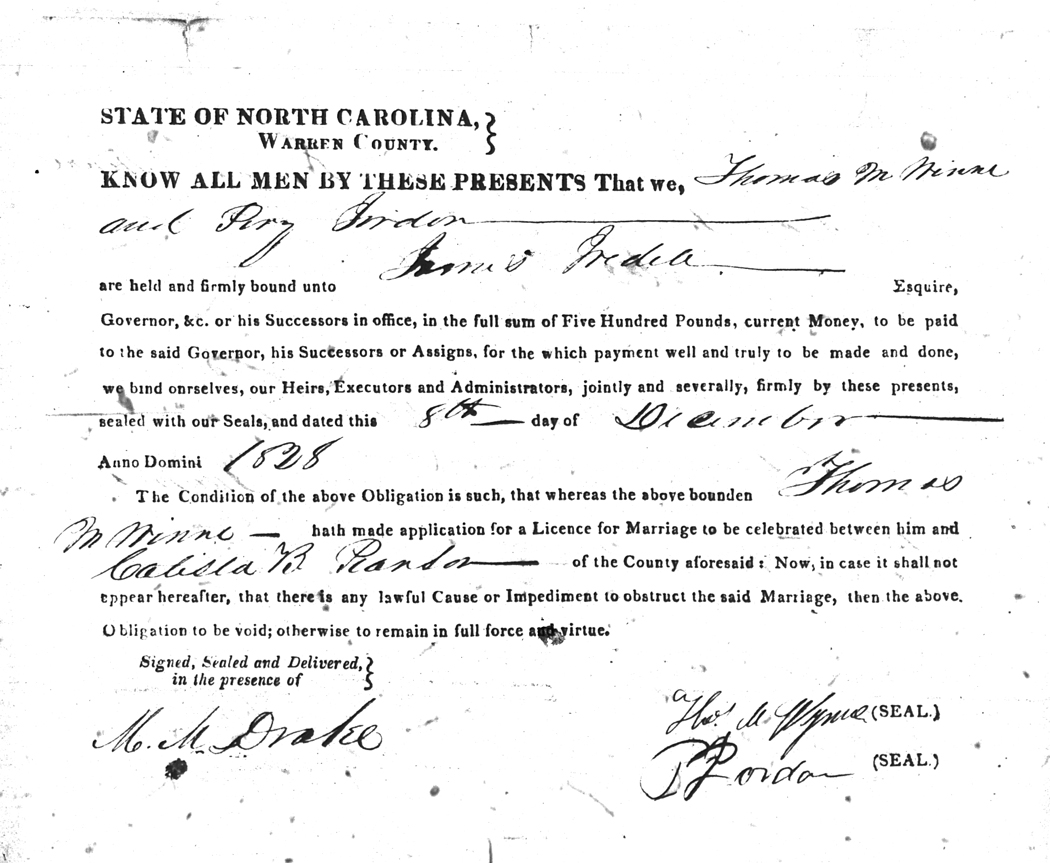 STATE OF NORTH CAROLINA,
WARREN COUNTY.
KNOW ALL MEN BY THESE PRESENTS That we, Thomas M Winne
and Pery Jordon
James Iredell
are held and firmly bound unto Esquire,
Governor, &c. or his Successors in office, in the full sum of Five Hundred Pounds, current Money, to be paid
to the said Governor, his Successors or Assigns, for the which payment well and truly to be made and done,
we bind onrselves, our Heirs, Executors and Administrators, jointly and severally, firmly by these presents,
sealed with our Seals, and dated this 8th day of December
Anno Domini 1828
The Condition of the above Obligation is such, that whereas the above bounden Thomas
M Winne hath made application for a Licence for Marriage to be celebrated between him and
Calista B of the County aforesaid: Now, in case it shall not
appear hereafter, that there is any lawful Cause or Impediment to obstruct the said Marriage, then the above.
Obligation to be void; otherwise to remain in full force and virtue.
Signed, Sealed and Delivered,
in the presence of
M. M. Drake
Thos M Wynne (SEAL.)
P Jordan (SEAL.)